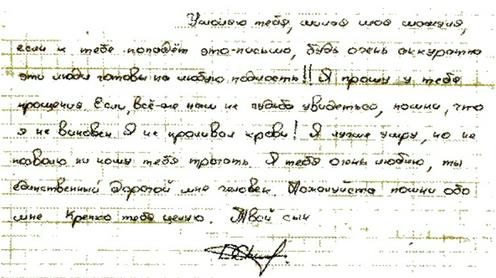 Умоляю тебя, милая моя мамуля,
если к тебе попадёт это письмо, будь очень аккуратна
эти люди готовы на любую подлость!! Я прошу у тебя
прощения. Если, всё-же нам не судьба увидеться, помни, что
я не виновен я не проливал крови! Я лучше умру, но не
позволю ни кому тебя трогать. Я тебя очень люблю, ты
единственный дорогой мне человек. Пожалуйста помни обо
мне Крепко тебя целую. Твой сын